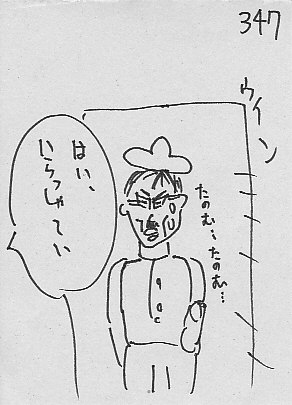 347
ウイン
はい、
いらっしゃてい
たのむ…たのむ…